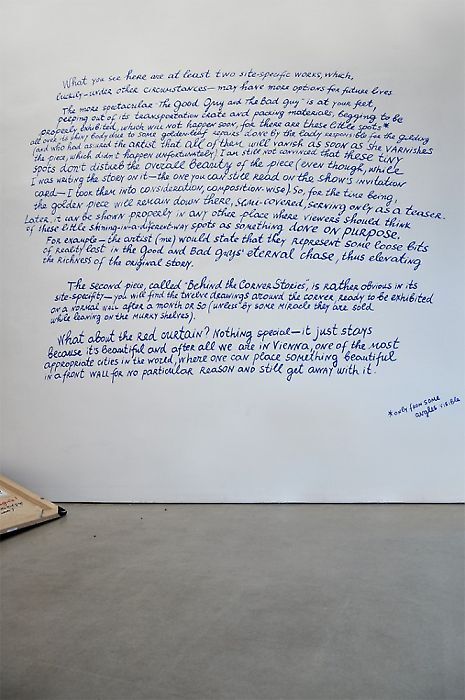 What you see here are at least two site-specific works, which,
luckily – under other circumstances – may have more options for future lives.
The more spectacular "The Good Guy and The Bad guy" is at your feet,
peeping out of its transportation crate and packing materials, begging to be
properly exhibited, which will not happen soon, for there are these little spots*
all over its shiny body due to some golden-leaf repairs done by the lady responsible for the gilding
(and who had assured the artist that all of them will vanish as soon as she varnishes
the piece, which didn't happen unfortunately.) I am still not convinced that these tiny
spots don't disturb the overall beauty of the piece (even though, while
I was writing the story on it – the one you can still read on the show's invitation
card – I took them into consideration, composition-wise). So, for the time being,
the golden piece will remain down there, semi-covered, serving only as a teaser.
Later, it can be shown properly in any other place where viewers should think
of these little shining-in-a-different-way spots as something done on purpose.
For example – the artist (me) would state that they represent some loose bits
of reality lost in the Good and Bad guys' eternal chase, thus elevating
the richness of the original story.
The second piece, called "Behind the Corner Stories", is rather obvious in its
site-specifity – you will find the twelve drawings around the corner ready to be exhibited
on a normal wall after a month or so (unless by some miracle they are sold
while leaning on the murky shelves).
What about the red curtain? Nothing special – it just stays
because it's beautiful and after all we are in Vienna, one of the most
appropriate cities in the world, where one can place something beautiful
in a front wall for no particular reason and still get away with it!
*only from some
angles visible